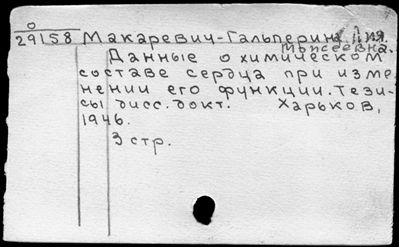 0
29158 Макаревич-Гальперина Лия.
Моисеевна.
Данные о химическом
составе сердца при изме
нении его функции. Тези-
сы дисс. докт. Харьков,
1946.
3 стр.